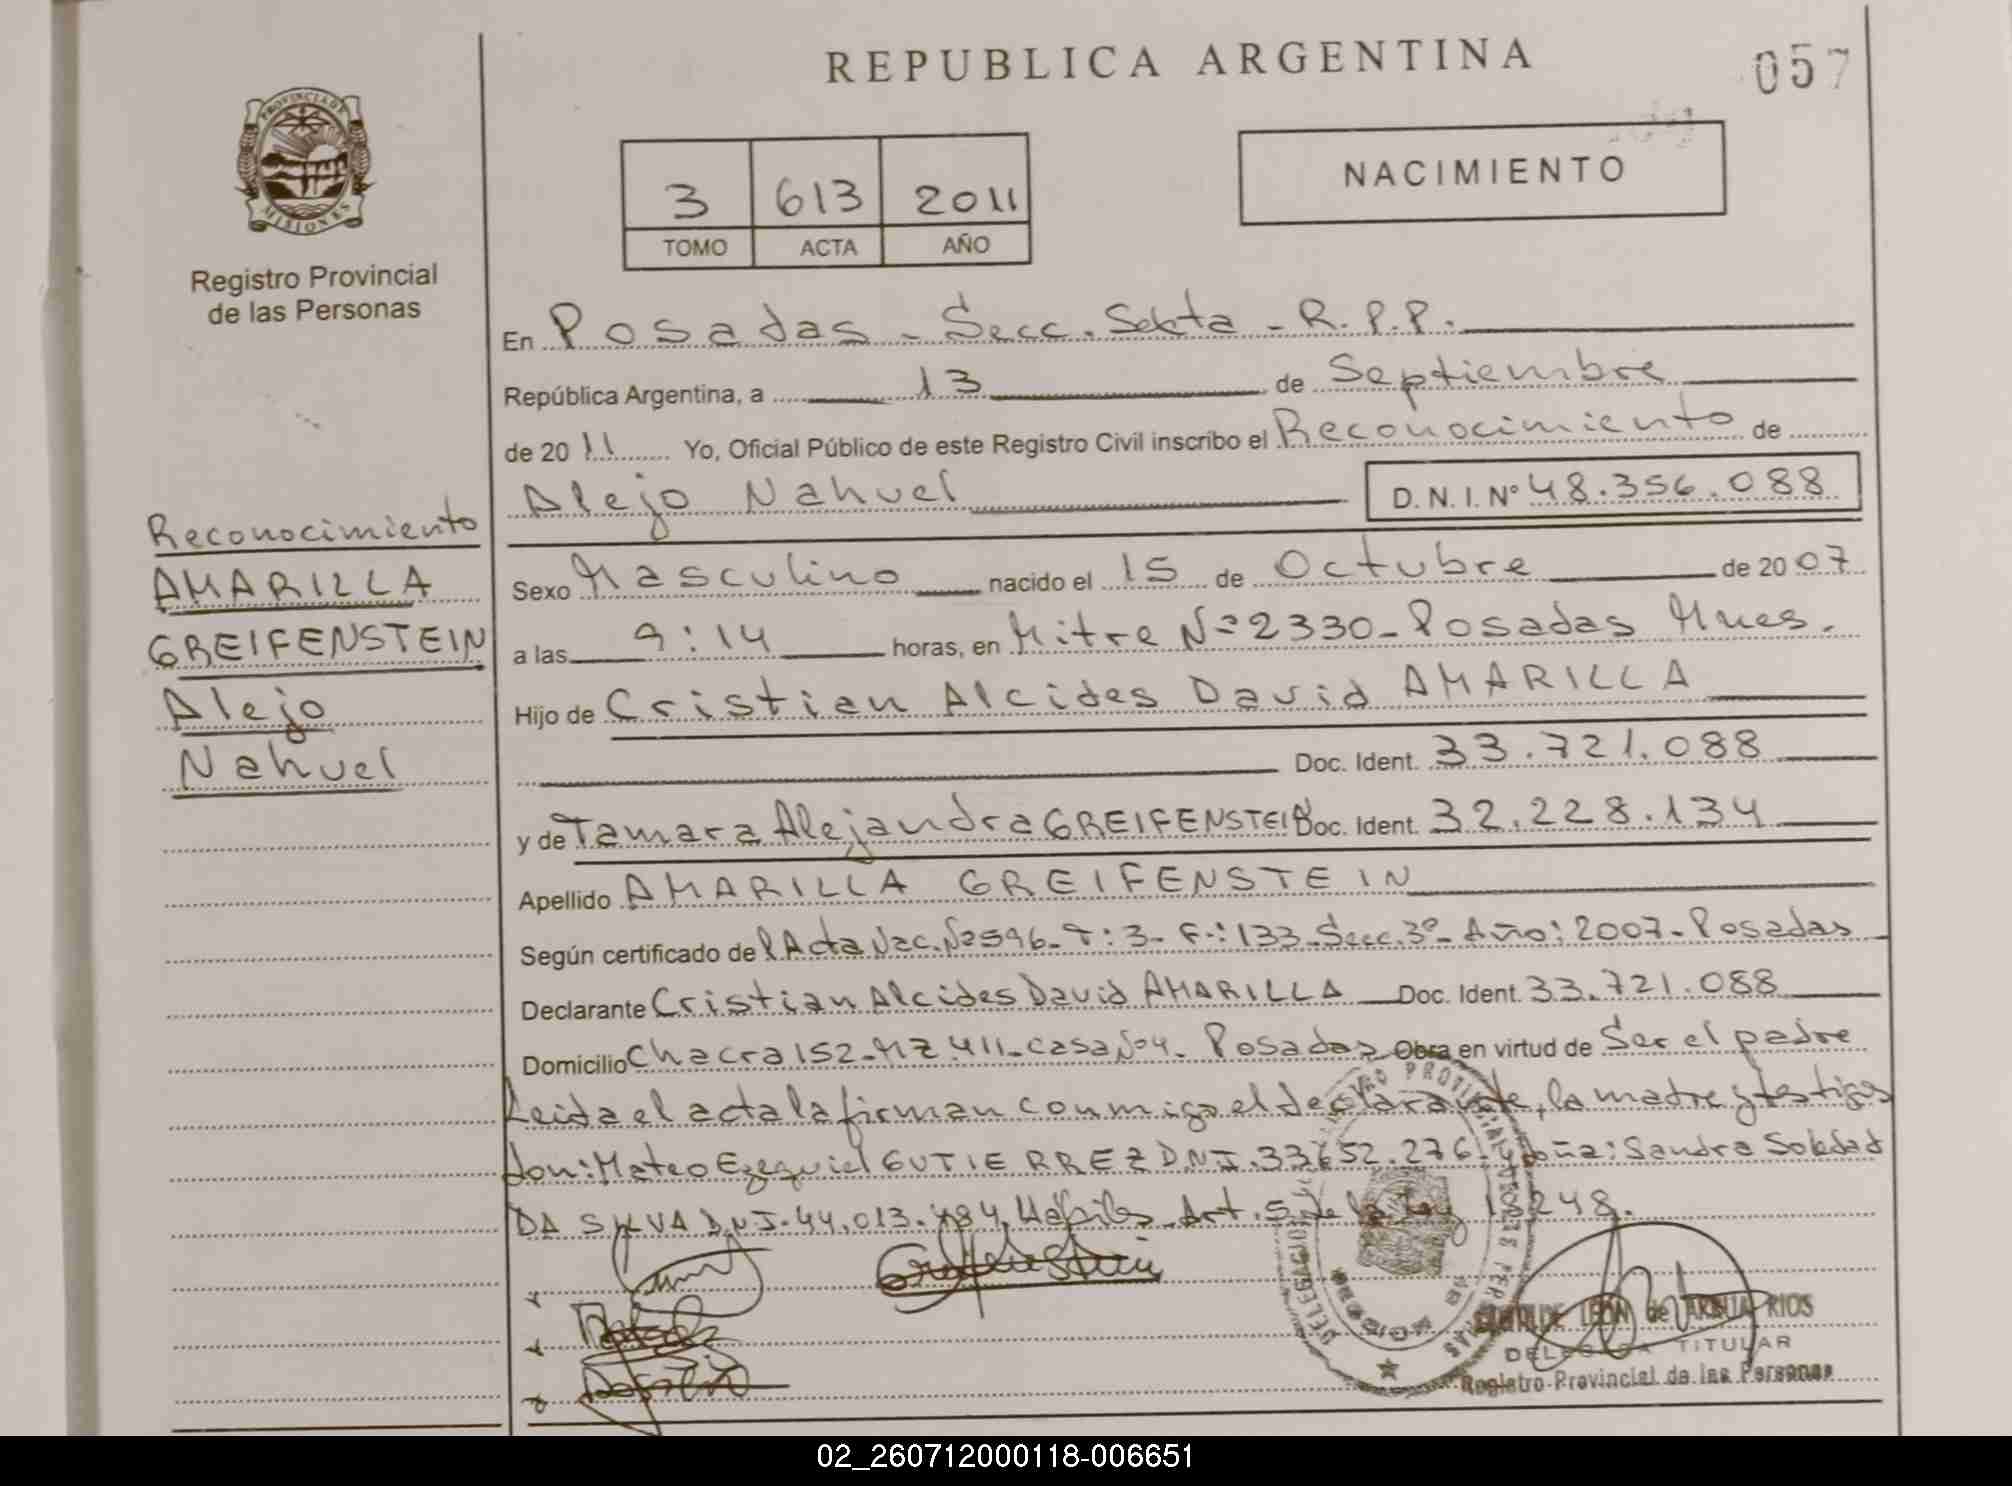 REPUBLICA ARGENTINA
057
PROVINCIA DE
MISIONES
Registro Provincial
de las Personas
3 613 2011
TOMO ACTA AÑO
NACIMIENTO
En Posadas - Secc. Sexta - R.P.P.
República Argentina, a 13 de Septiembre
de 2011 Yo, Oficial Público de este Registro Civil inscribo el Reconocimiento de
Alejo Nahuel D.N.I. Nº 48.356.088
Reconocimiento
AMARILLA
GREIFENSTEIN
Alejo
Nahuel
Sexo Masculino nacido el 15 de Octubre de 2007
a las 9:14 horas, en Mitre Nº 2330 - Posadas Mnes.
Hijo de Cristian Alcides David AMARILLA
Doc. Ident. 33.721.088
y de Tamara Alejandra GREIFENSTEIN Doc. Ident. 32.228.134
Apellido AMARILLA GREIFENSTEIN
Según certificado del Acta Nac. Nº 596 - T: 3 - F: 133 - Secc. 3º - Año: 2007 - Posadas
Declarante Cristian Alcides David AMARILLA Doc. Ident. 33.721.088
Domicilio Chacra 152 - MZ 411 - casa Nº 4 - Posadas Obra en virtud de Ser el padre
Leida el acta la firman conmigo el declarante, la madre y testigos
don: Mateo Ezequiel GUTIERREZ DNI. 33.652.276 y doña: Sandra Soledad
DA SILVA DNI. 44.013.484, Hábiles Art. 5 de la Ley 18.248.
LEON de RIOS
DELEGADA TITULAR
Registro Provincial de las Personas
02_260712000118-006651